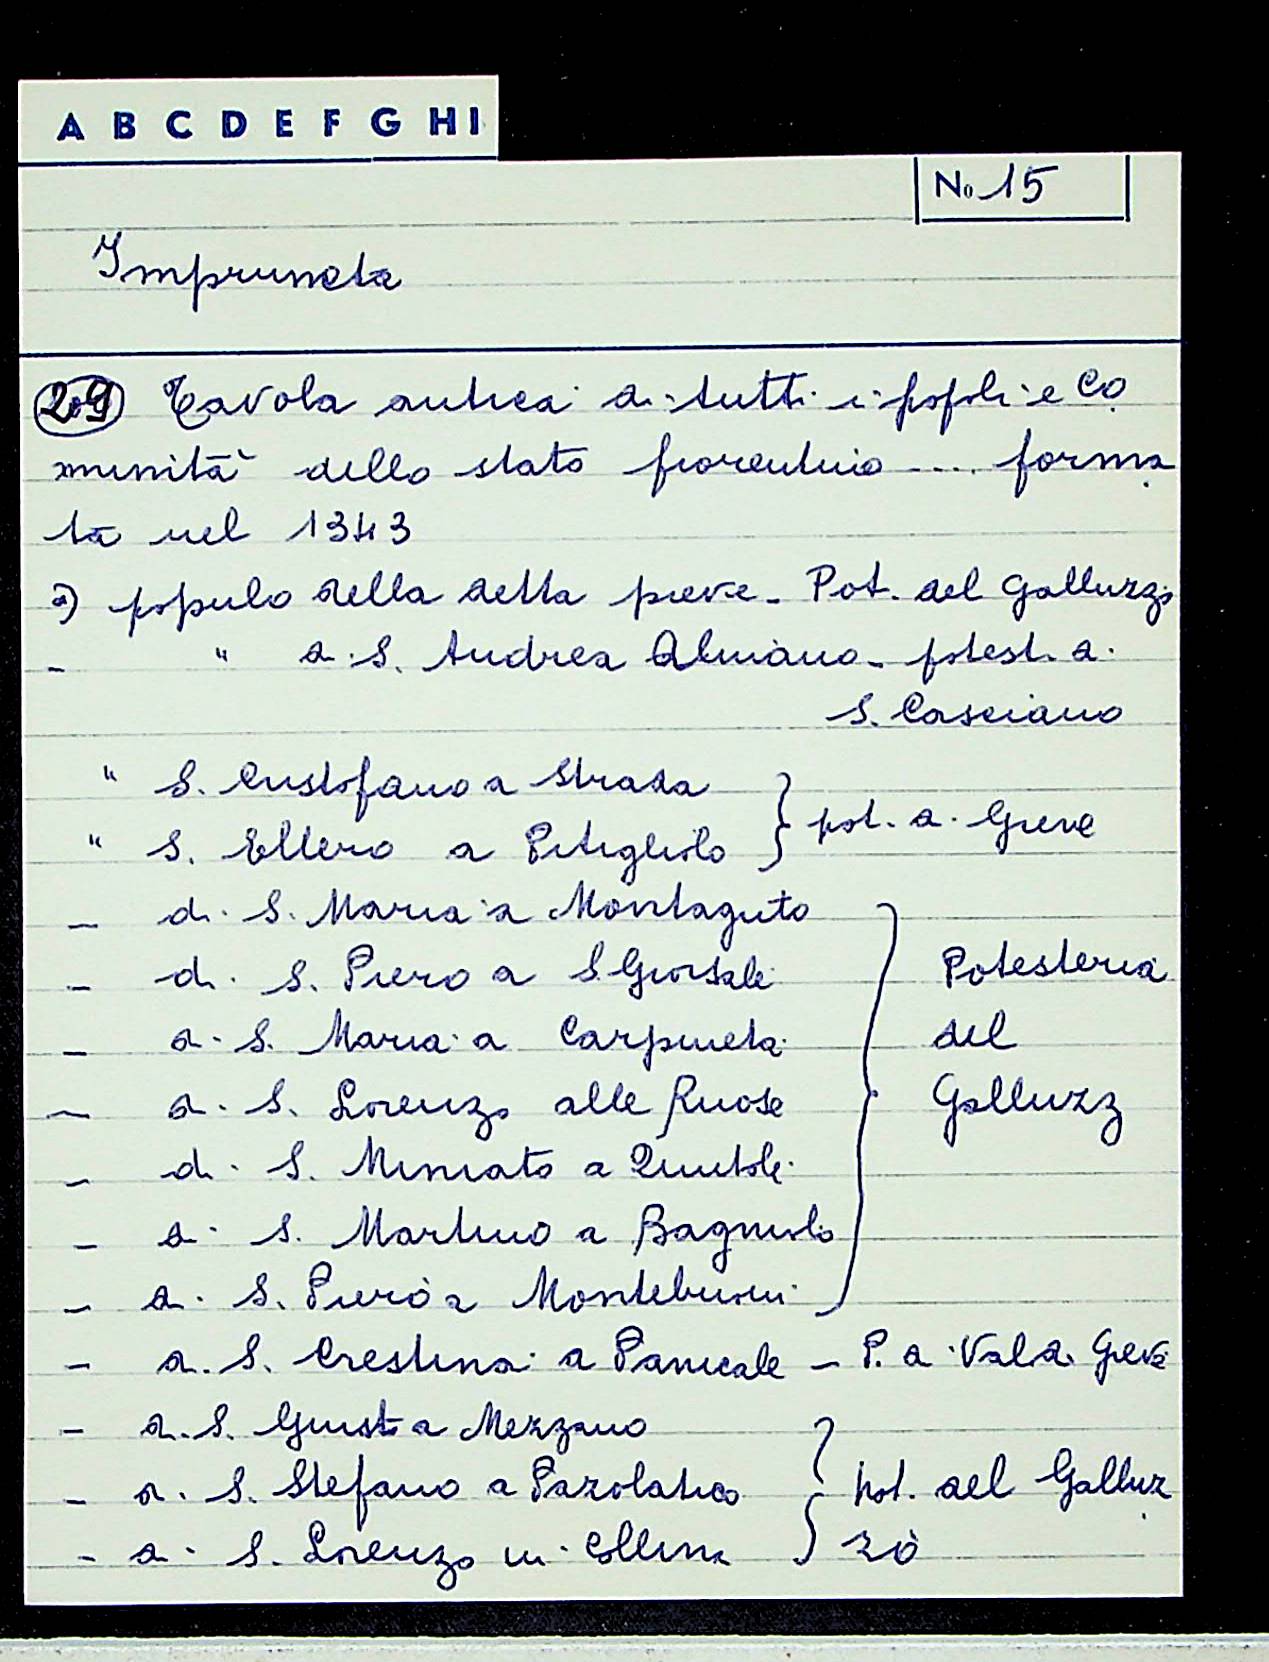 A B C D E F G H I
No 15
Impruneta
209 Tavola antica di tutti i popoli e Co
munità dello stato fiorentino .... forma
ta nel 1343
a) populo della detta pieve - Pot. del Galluzzo
- " di S. Andrea a Luiano - potest. di
S. Casciano
" S. Cristofano a Strada
" S. Ellero a Pitigliolo } pot. di Greve
- di S. Maria a Montaguto
- di S. Piero a S. Gersolè
- di S. Maria a Carpineta
- di S. Lorenzo alle Ruose
- di S. Miniato a Quintole
- di S. Martino a Bagnolo
- di S. Piero a Montebuoni
} Potesteria
del
Galluzz
- di S. Crestina a Panicale - P. di Val di Greve
- di S. Giusto a Mezzano
- di S. Stefano a Pazolatico
- di S. Lorenzo in Collina
} pot. del Galluz
zo